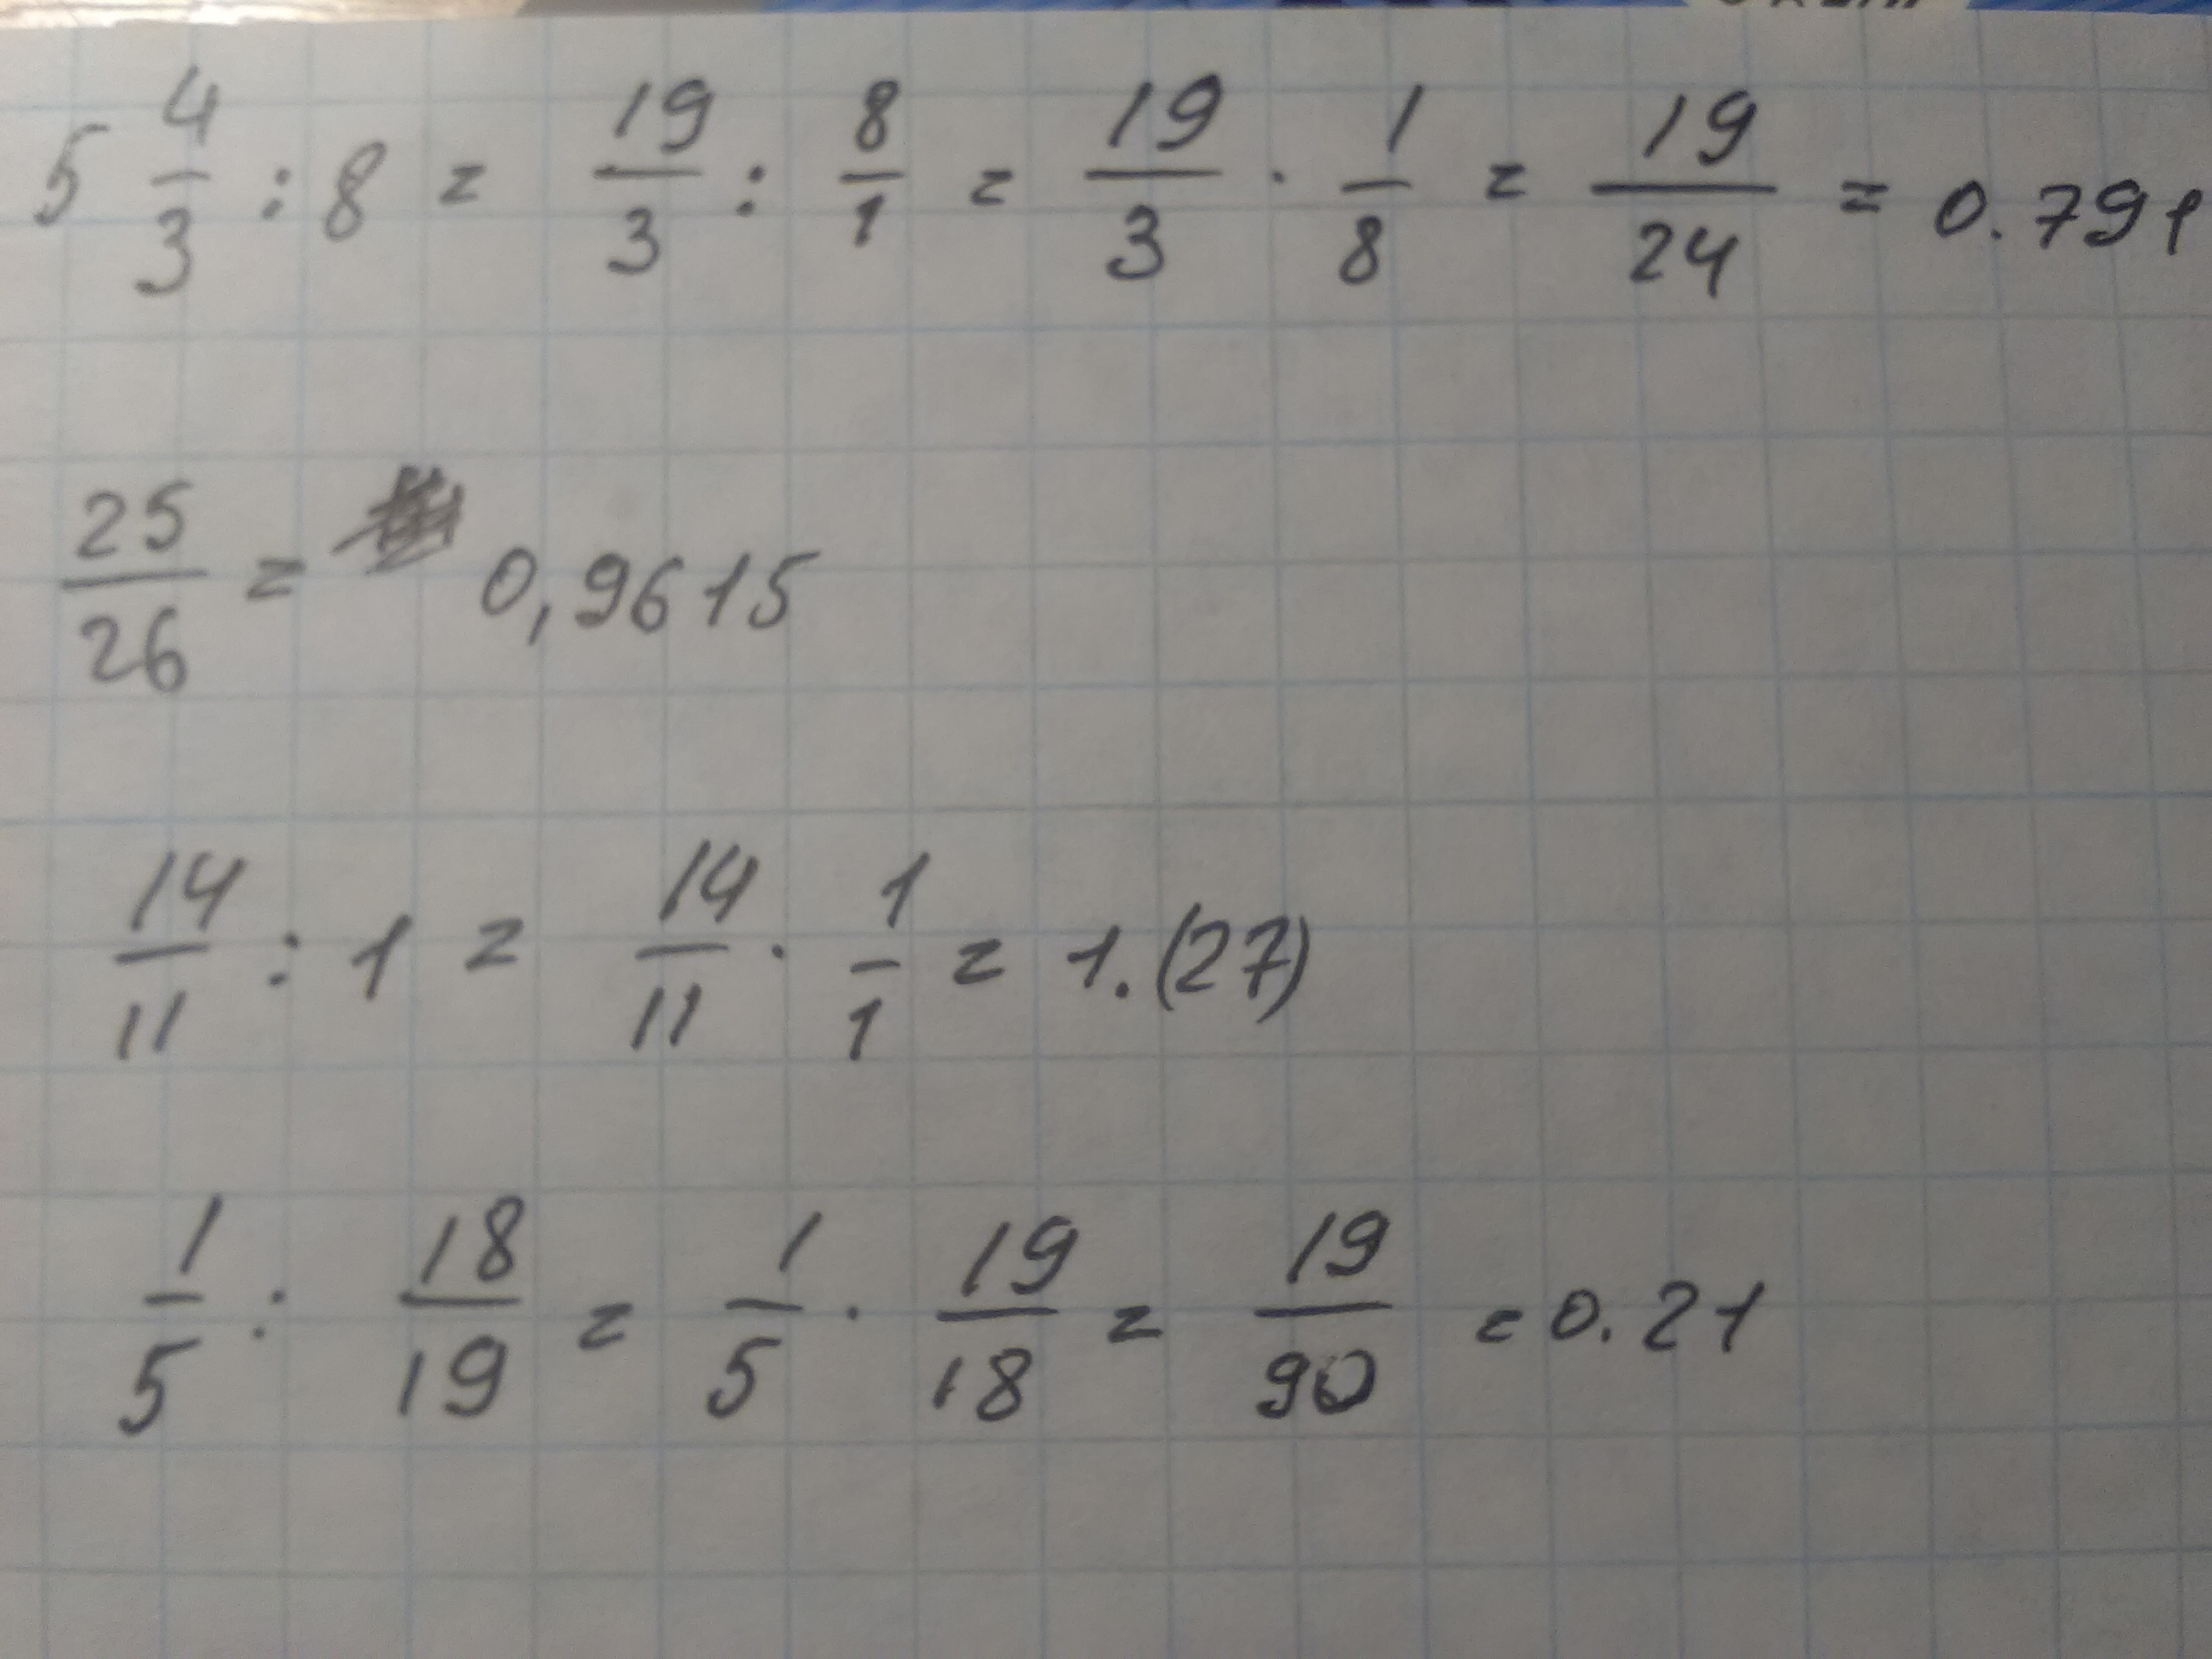 5 4/3 : 8 = 19/3 : 8/1 = 19/3 · 1/8 = 19/24 = 0.791
25/26 = 0,9615
14/11 : 1 = 14/11 · 1/1 = 1.(27)
1/5 : 18/19 = 1/5 · 19/18 = 19/90 = 0.21